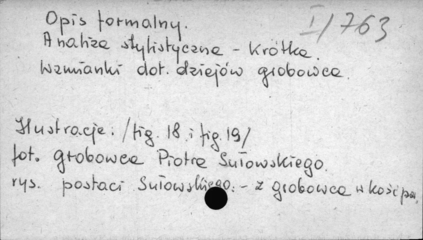 Opis formalny.
I/763
Analiza stylistyczna - krótka.
Wzmianki dot. dziejów grobowca.
Ilustracje: /fig. 18 i fig. 19/
fot. grobowca Piotra Sułowskiego.
rys. postaci Sułowskiego - z grobowca w kość par.